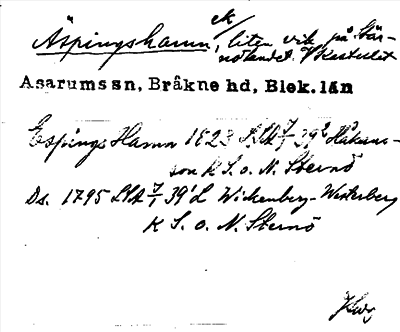 Äspingshamn, ek/ liten vik på Stär-
nölandet. V Kastellet
Asarums sn, Bräkne hd, Blek. län
Espings Hamn 1823 LSA 7/1 39² Håkans-
son K S. o. N. Sternö
Ds. 1795 LSA 7/1 39¹ L Wickenberg-Westerberg
K S. o. N. Sternö